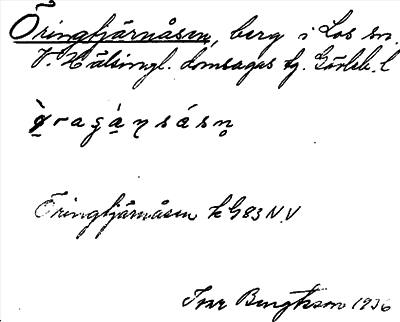 Öringtjärnåsen, berg i Los sn.
V. Hälsingl. domsagas tg. Gävleb. l
Öringtjärnåsen k G83 N.V
Tore Bengtsson 1936